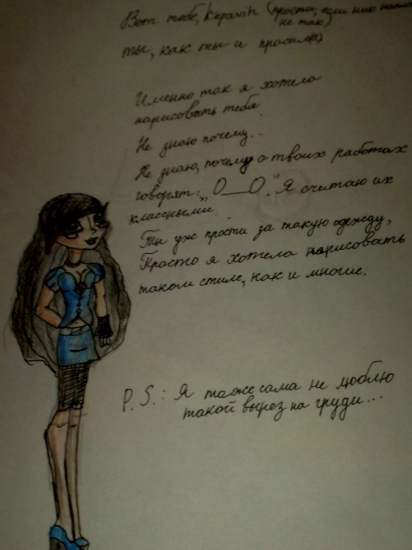 Вот тебе, (прости, если ник напис
не так)
ты, как ты и просила)
Именно так я хотела
нарисовать тебя.
Не знаю почему...
Не знаю, почему о твоих работах
говорят: „О__О." Я считаю их
классными.
Ты уж прости за такую одежду,
Просто я хотела нарисовать
таком стиле, как и многие.
P.S.: Я также сама не люблю
такой вырез на груди...